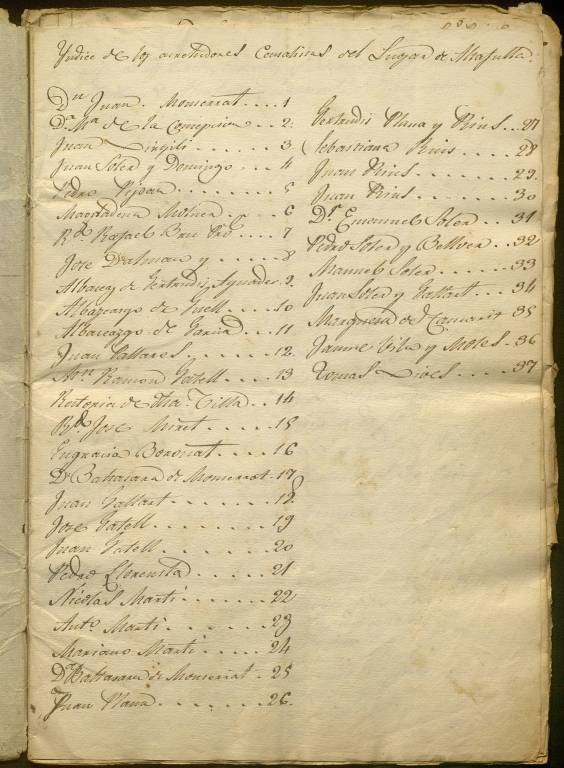 Yndice de los acrehedores Censalistas del Lugar de Altafulla.
Dn Juan. Monserrat .... 1
Da Ma de la Concepcion .. 2.
Juan ..... 3.
Juan Soler y Domingo .. 4
Pedro Pijoan ..... 5
Magdadena Moliner ... 6
Rdo Rafael Bru Pro ... 7
Jose Dalmau y ..... 8
Albacea de Gertrudis 9.
Albaceazgo de .... 10
Albaceazgo de Garcia .. 11
Juan Pallares y .... 12.
Anto Ramon Gatell ... 13
Rectoria de dha. Villa .. 14
Rdo Jose Miret .... 15
Engracia Boronat .... 16
Da Baltasara de Monserrat - 17
Juan Gallart ..... 18
Jose Gatell ...... 19
Juan Gatell ...... 20
Pedro Llorensta ..... 21
Nicolas Marti ..... 22
Anto. Marti ...... 23
Mariano Marti ..... 24
Da Baltasara de Monserrat - 25
Juan Plana ....... 26.
Gertrudis Plana y Rius .. 27
Sebastiana Rius .... 28
Juan Rius ..... 29.
Juan Rius ..... 30
Dr Emanuel Soler ... 31
Pedro Soler y Bellver .. 32
Manuel Soler ..... 33
Juan Soler y Gallart ... 34
Marquesa de Tamarit 35
Jaume Vila y Moles - 36
Tomas Vives .... 37